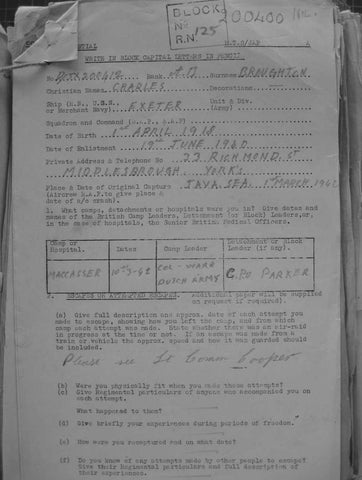 BLOCK
No 200400
R.N 125
M.I.9/JAP
WRITE IN BLOCK CAPITAL LETTERS IN PENCIL
No. Rank Surname BROUGHTON
Christian Names CHARLES Decorations
Ship (R.N. U.S.S. or Merchant Navy) EXETER Unit & Div. (Army)
Squadron and Command (R.A.F.)
Date of Birth 1ST APRIL 1918
Date of Enlistment 19TH JUNE 1940
Private Address & Telephone No 33 RICHMOND ST
MIDDLESBROUGH YORKS
Place & Date of Original Capture JAVA SEA 1ST MARCH 1942
(Aircrew R.A.F. to give place &
date of a/c crash).
1. What camps, detachments or hospitals were you in? Give dates and
names of the British Camp Leaders, Detachment (or Block) Leaders, or,
in the case of hospitals, the Senior British Medical Officers.
Camp or Hospital. Dates Camp Leader Detachment or Block Leader (if any).
MACCASSER 10TH-3-42 COL-WARR DUTCH ARMY C.P.O PARKER
2. ESCAPES OR ATTEMPTED ESCAPES. Additional paper will be supplied
on request if required).
(a) Give full description and approx. date of each attempt you
made to escape, showing how you left the camp, and from which
camp each attempt was made. State whether there was an air-raid
in progress at the time or not. If an escape was made from a
train or vehicle the approx. speed and how it was guarded should
be included.
Please see Lt Comm Cooper
(b) Were you physically fit when you made these attempts?
(c) Give Regimental particulars of anyone who accompanied you on
each attempt.
What happened to them?
(d) Give briefly your experiences during periods of freedom.
(e) How were you recaptured and on what date?
(f) Do you know of any attempts made by other people to escape?
Give their Regimental particulars and full description of
their experiences.